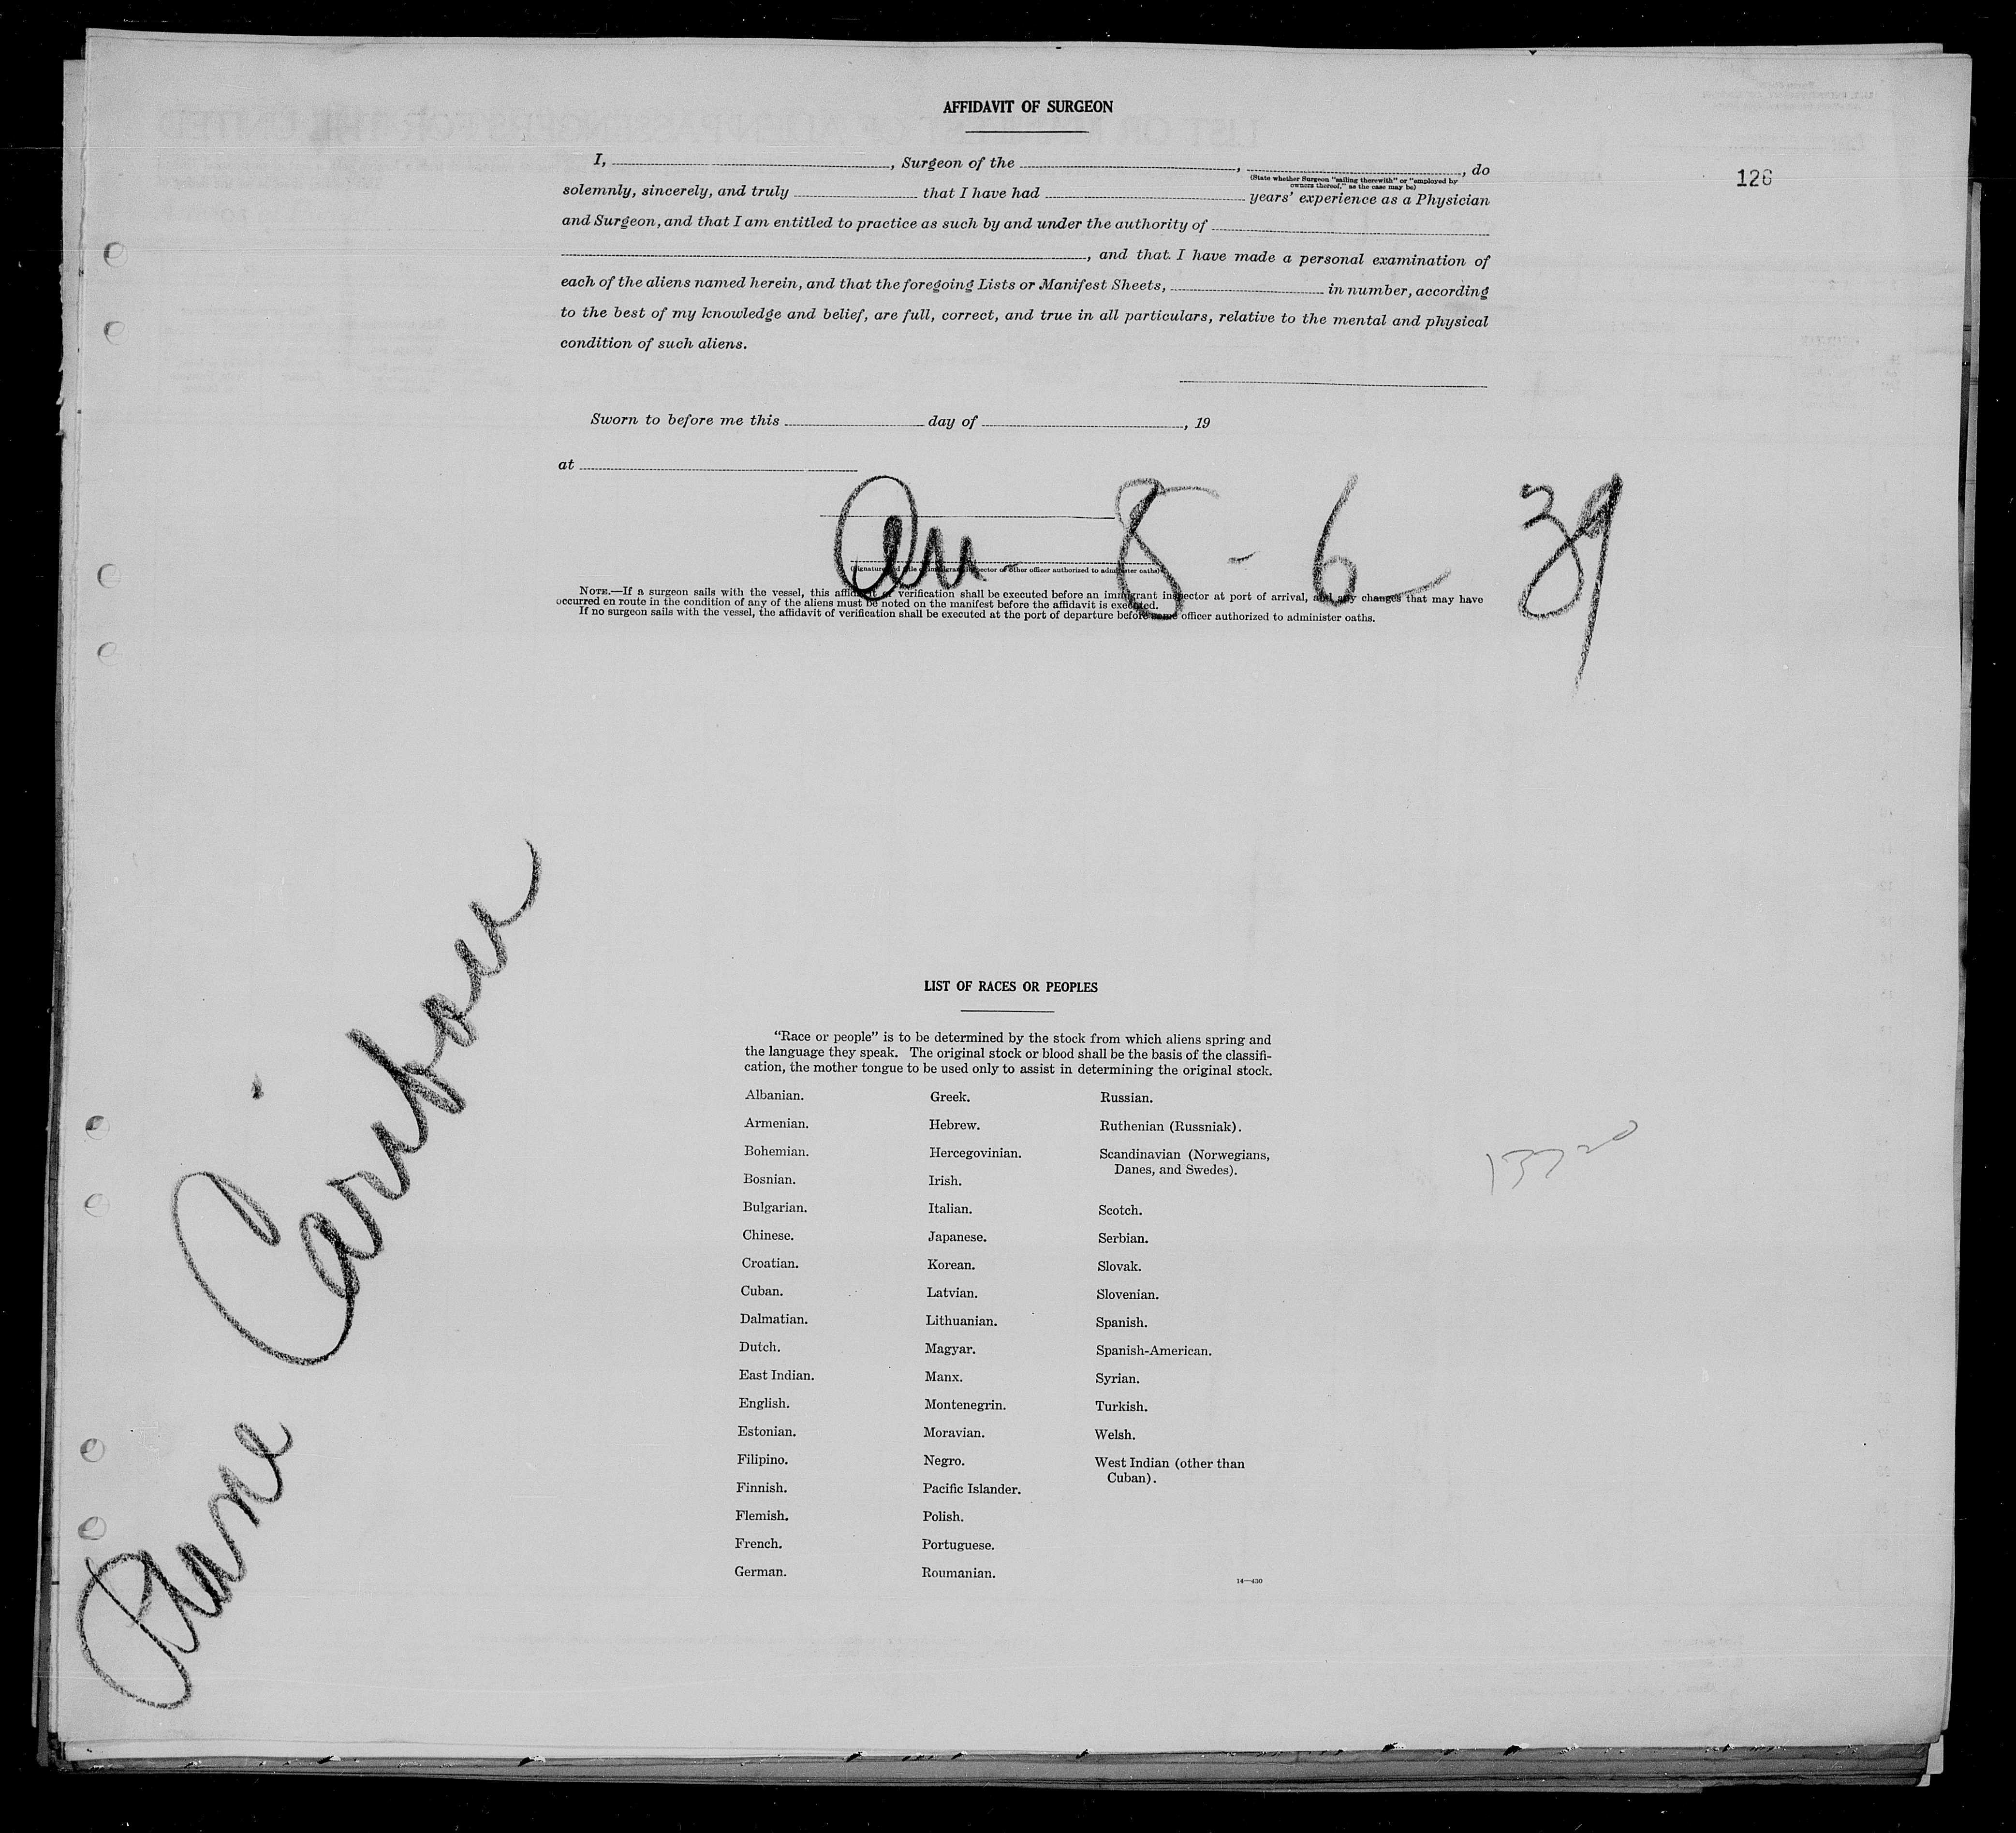 AFFIDAVIT OF SURGEON
126
I, , Surgeon of the , , do
(State whether Surgeon "sailing therewith" or "employed by
owners thereof," as the case may be)
solemnly, sincerely, and truly that I have had years' experience as a Physician
and Surgeon, and that I am entitled to practice as such by and under the authority of
, and that I have made a personal examination of
each of the aliens named herein, and that the foregoing Lists or Manifest Sheets, in number, according
to the best of my knowledge and belief, are full, correct, and true in all particulars, relative to the mental and physical
condition of such aliens.
Sworn to before me this day of , 19
at
8 - 6 39
(Signature and title of immigrant inspector or other officer authorized to administer oaths)
NOTE.—If a surgeon sails with the vessel, this affidavit or verification shall be executed before an immigrant inspector at port of arrival, and any changes that may have
occurred en route in the condition of any of the aliens must be noted on the manifest before the affidavit is executed.
If no surgeon sails with the vessel, the affidavit of verification shall be executed at the port of departure before some officer authorized to administer oaths.
Plane Carribou
LIST OF RACES OR PEOPLES
"Race or people" is to be determined by the stock from which aliens spring and
the language they speak. The original stock or blood shall be the basis of the classifi-
cation, the mother tongue to be used only to assist in determining the original stock.
Albanian.
Armenian.
Bohemian.
Bosnian.
Bulgarian.
Chinese.
Croatian.
Cuban.
Dalmatian.
Dutch.
East Indian.
English.
Estonian.
Filipino.
Finnish.
Flemish.
French.
German.
Greek.
Hebrew.
Hercegovinian.
Irish.
Italian.
Japanese.
Korean.
Latvian.
Lithuanian.
Magyar.
Manx.
Montenegrin.
Moravian.
Negro.
Pacific Islander.
Polish.
Portuguese.
Roumanian.
Russian.
Ruthenian (Russniak).
Scandinavian (Norwegians,
Danes, and Swedes).
Scotch.
Serbian.
Slovak.
Slovenian.
Spanish.
Spanish-American.
Syrian.
Turkish.
Welsh.
West Indian (other than
Cuban).
14—430